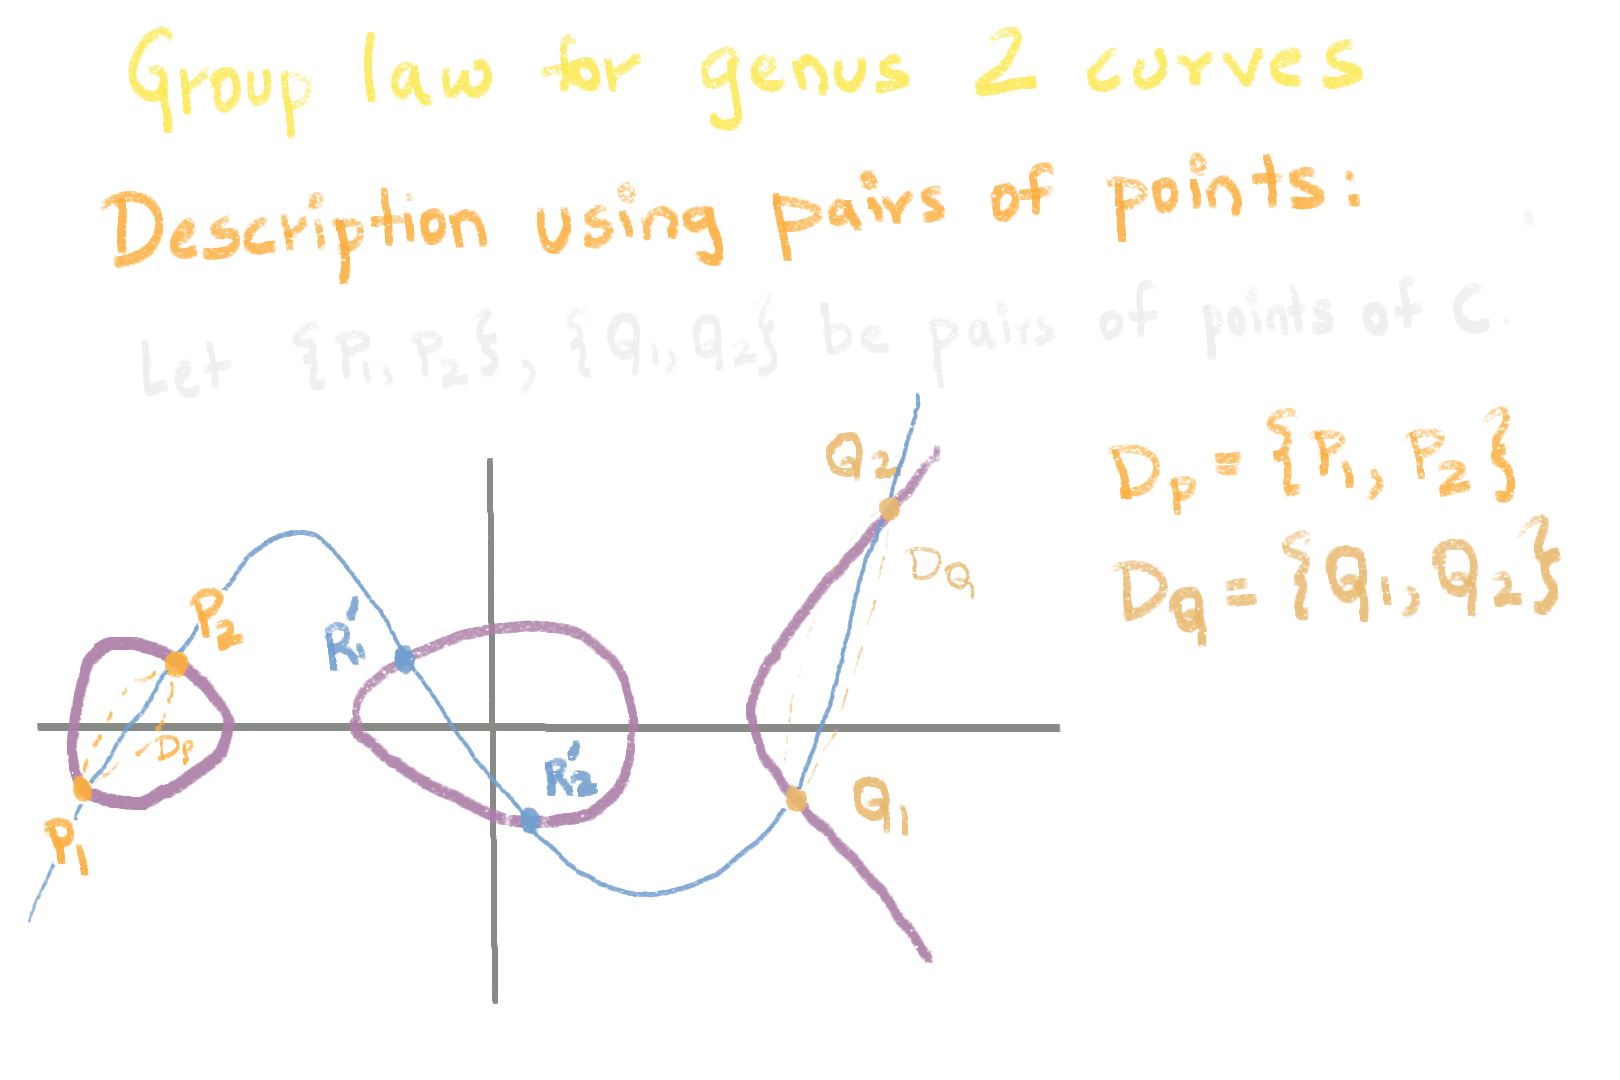 Group law for genus 2 curves
Description using pairs of points:
Let {P₁, P₂}, {Q₁, Q₂} be pairs of points of C.
Q₂
D_P = {P₁, P₂}
D_Q
D_Q = {Q₁, Q₂}
P₂
R₁'
D_P
R₂'
P₁
Q₁